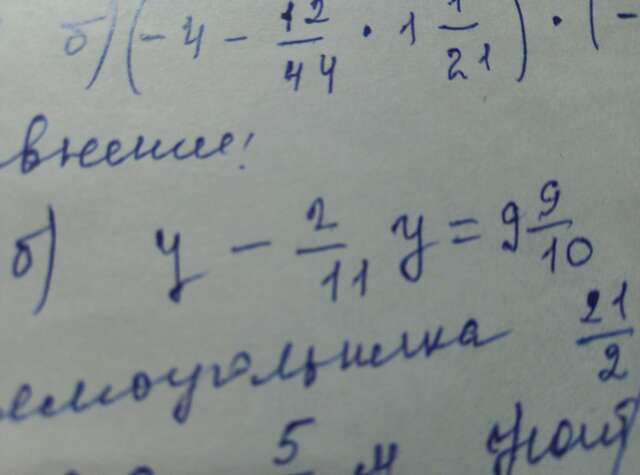 б) (-4 - 12/44 · 1 1/21) · (-
внение:
б) y - 2/11 y = 9 9/10
ямоугольника 21/2
5 м